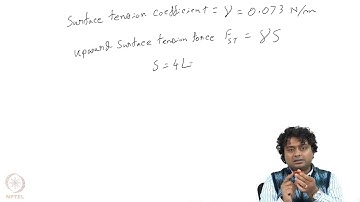 Surface tension coefficient = γ = 0.073 N/m
Upward surface tension force F_ST = γS
S = 4L
NPTEL